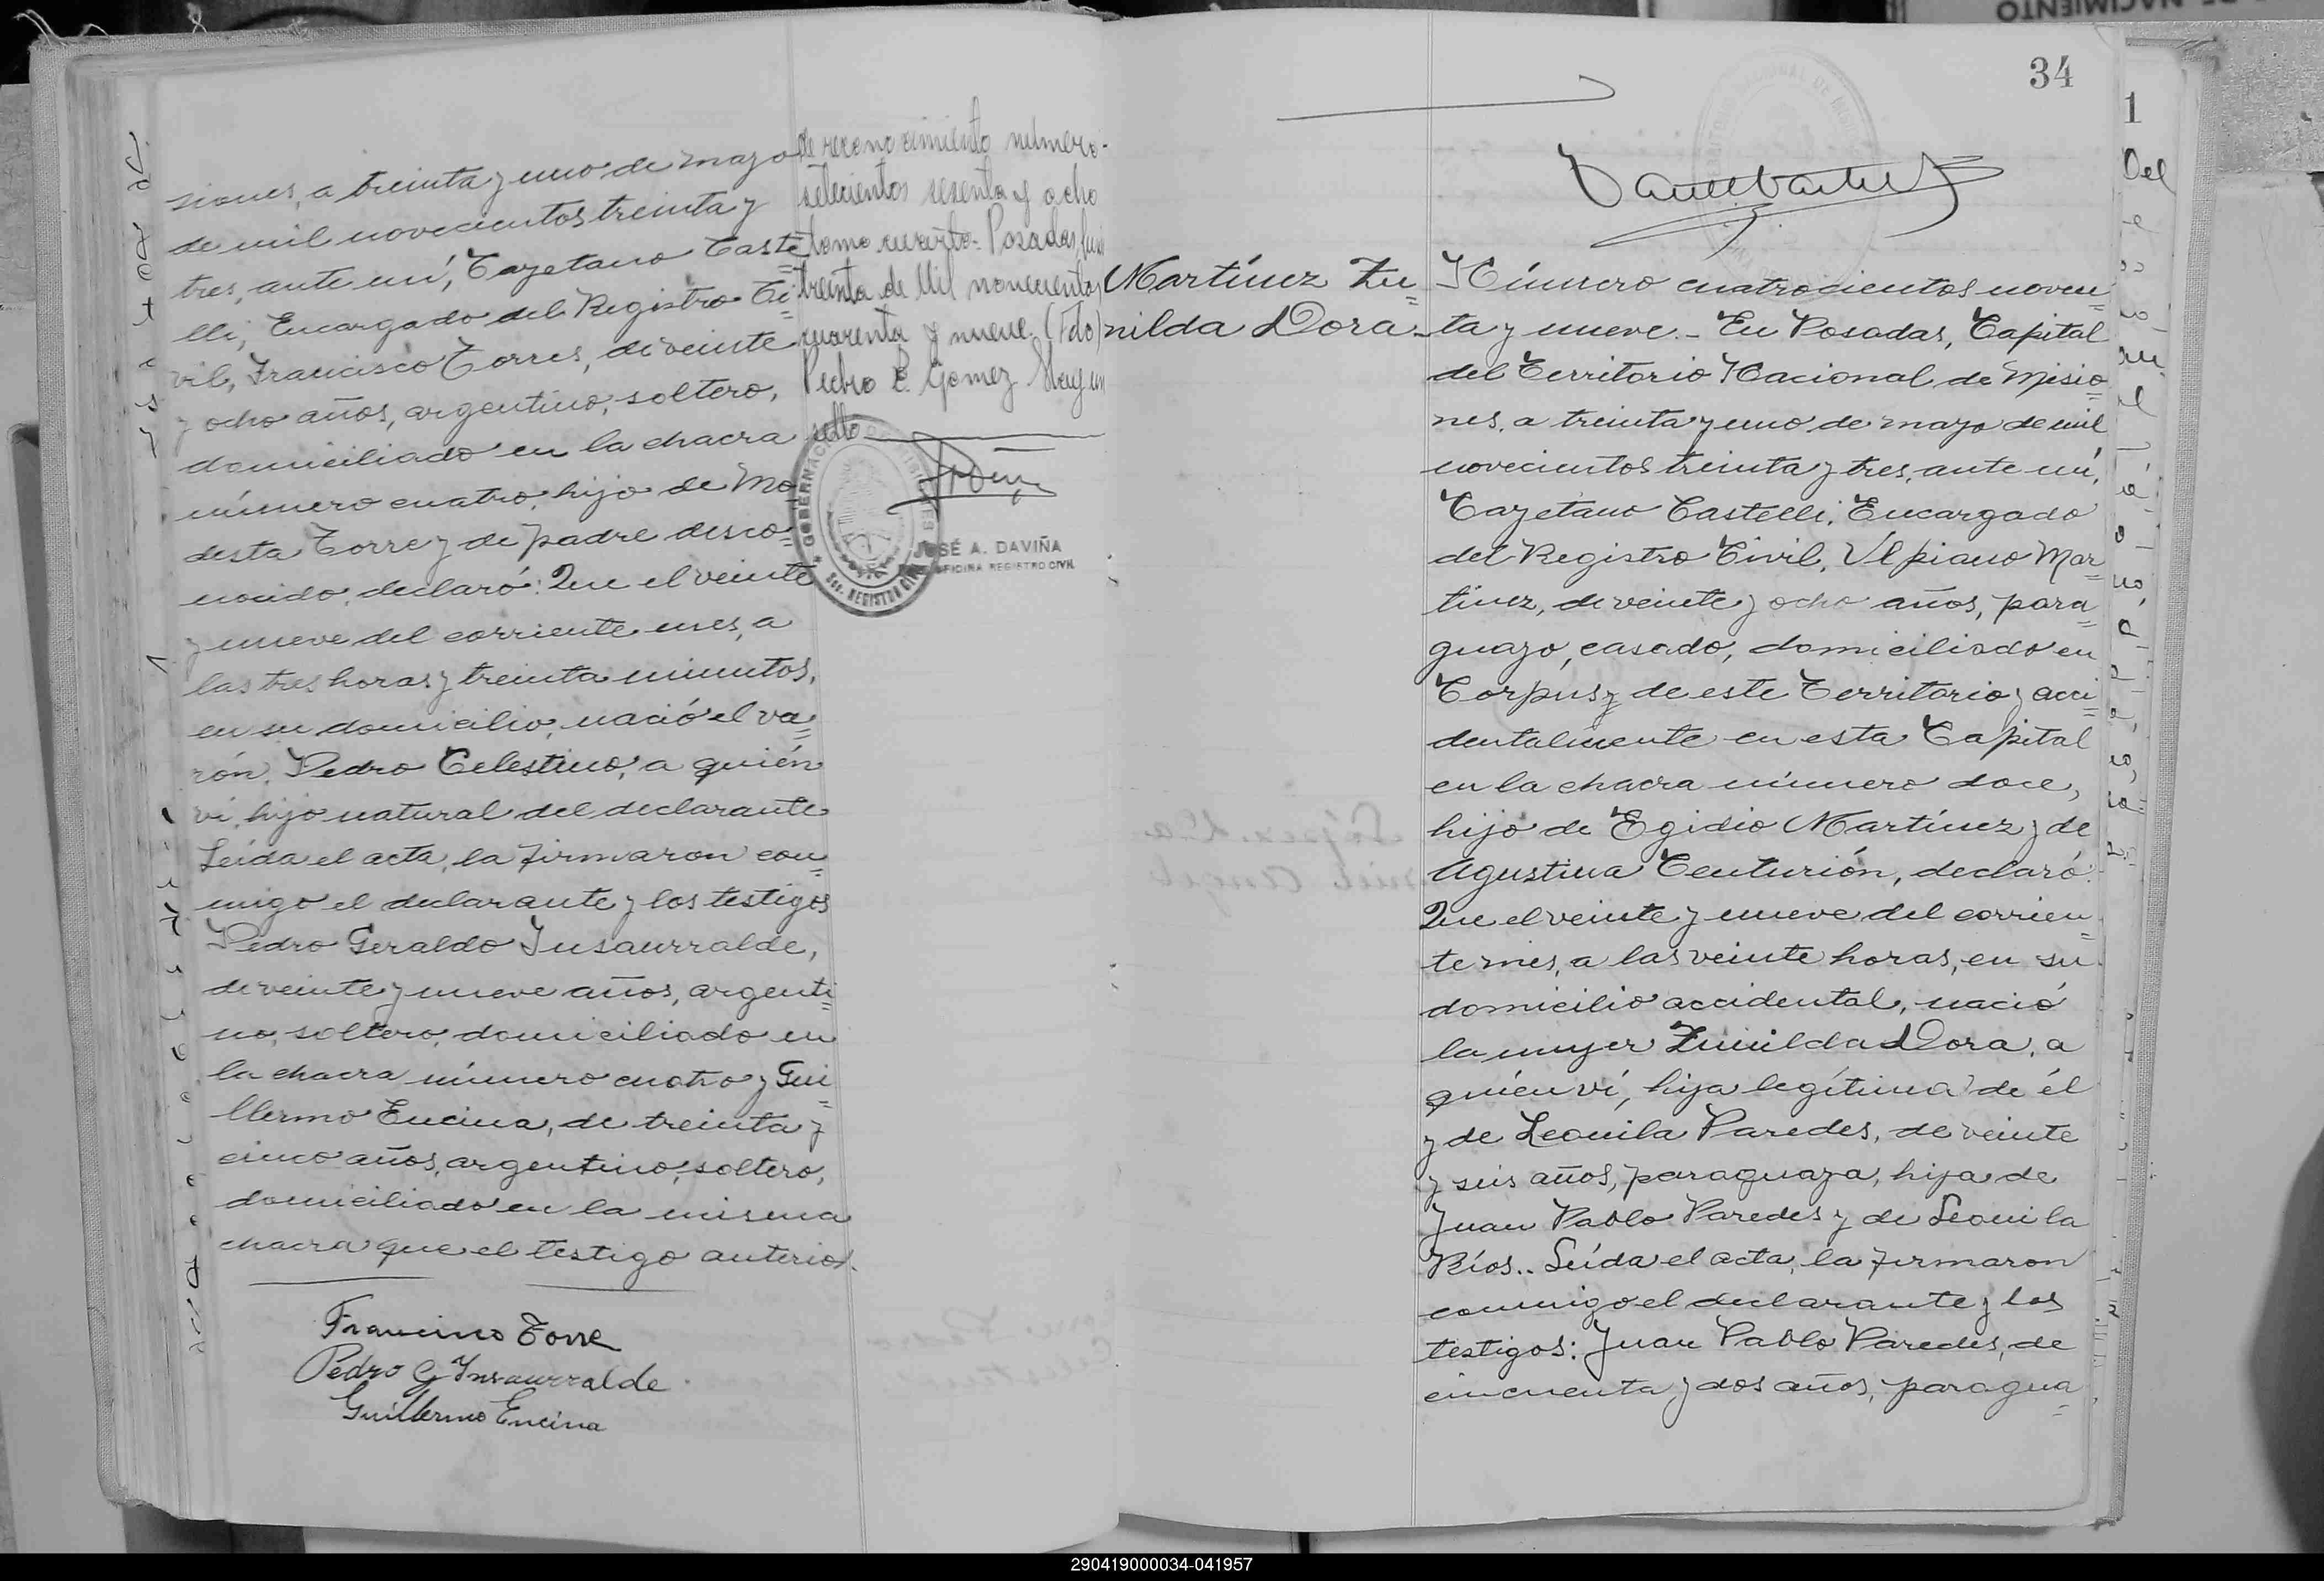 siones, a treinta y uno de mayo
de mil novecientos treinta y
tres, ante mí, Cayetano Caste=
lli, Encargado del Registro Ci=
vil, Francisco Torres, de veinte
y ocho años, argentino, soltero,
domiciliado en la chacra
número cuatro, hijo de Mo=
desta Torre y de padre desco=
nocido, declaró: Que el veinte
y nueve del corriente mes, a
las tres horas y treinta minutos,
en su domicilio, nació el va=
rón, Pedro Celestino, a quién
ví, hijo natural del declarante
Leída el acta, la firmaron con=
migo el declarante y los testigos
Pedro Geraldo Insaurralde,
de veinte y nueve años, argenti=
no, soltero, domiciliado en
la chacra número cuatro y Gui=
llermo Encina, de treinta y
cinco años, argentino, soltero,
domiciliado en la misma
chacra que el testigo anterior.
Francisco Torre
Pedro G Insaurralde
Guillermo Encina
de reconocimiento número
setecientos sesenta y ocho
tomo cuarto - Posadas,
treinta de Mil novecientos
cuarenta y nueve. (Fdo)
Pedro E. Gomez
sello
GOBERNACION DE MISIONES
REGISTRO CIVIL
JOSÉ A. DAVIÑA
OFICINA REGISTRO CIVIL
34
Martínez Zu=
nilda Dora.
Número cuatrocientos noven=
ta y nueve. - En Posadas, Capital
del Territorio Nacional de Misio=
nes, a treinta y uno de mayo de mil
novecientos treinta y tres, ante mí,
Cayetano Castelli, Encargado
del Registro Civil, Ulpiano Mar=
tínez, de veinte y ocho años, para=
guayo, casado, domiciliado en
Corpus, de este Territorio y acci=
dentalmente en esta Capital
en la chacra número doce,
hijo de Egidio Martínez y de
Agustina Centurión, declaró:
Que el veinte y nueve del corrien=
te mes, a las veinte horas, en su
domicilio accidental, nació
la mujer Zunilda Dora, a
quién ví, hija legítima de él
y de Leonila Paredes, de veinte
y seis años, paraguaya, hija de
Juan Pablo Paredes y de Leonila
Ríos.. Leída el acta, la firmaron
conmigo el declarante y los
testigos: Juan Pablo Paredes, de
cincuenta y dos años, paragua=
1
Del
290419000034-041957